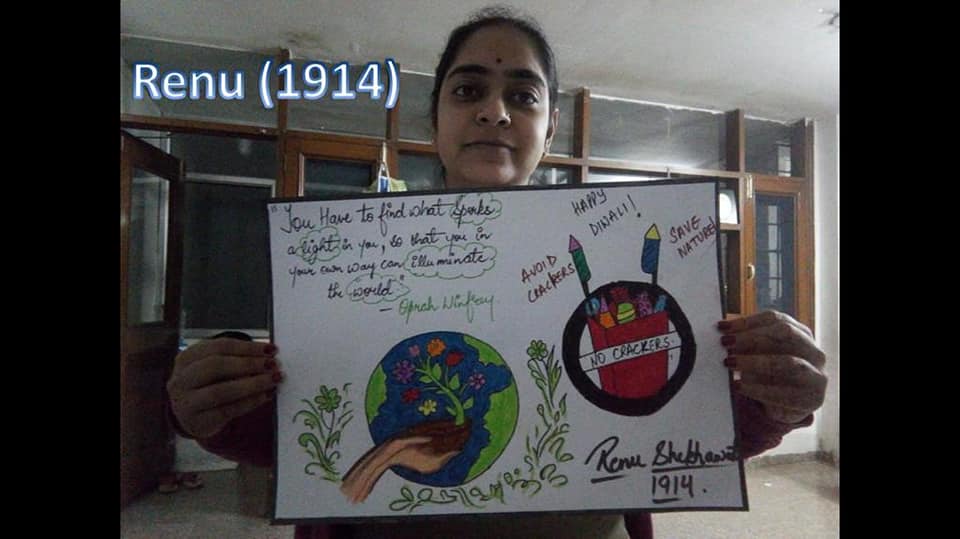 Renu (1914)
"You Have to find what sparks
a light in you, so that you in
your own way can illuminate
the world."
- Oprah Winfrey
HAPPY
DIWALI!
SAVE
NATURE!
AVOID
CRACKERS
NO CRACKERS.
Renu Shekhawat
1914.